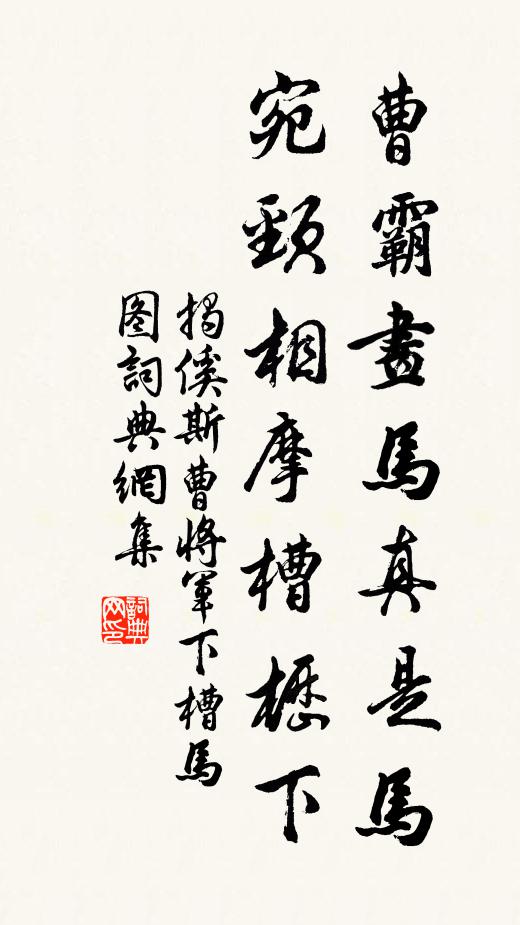 曹霸畫馬真是馬
宛頸相摩槽櫪下
揭傒斯曹將軍下槽馬
图詞典網集
詞典网印